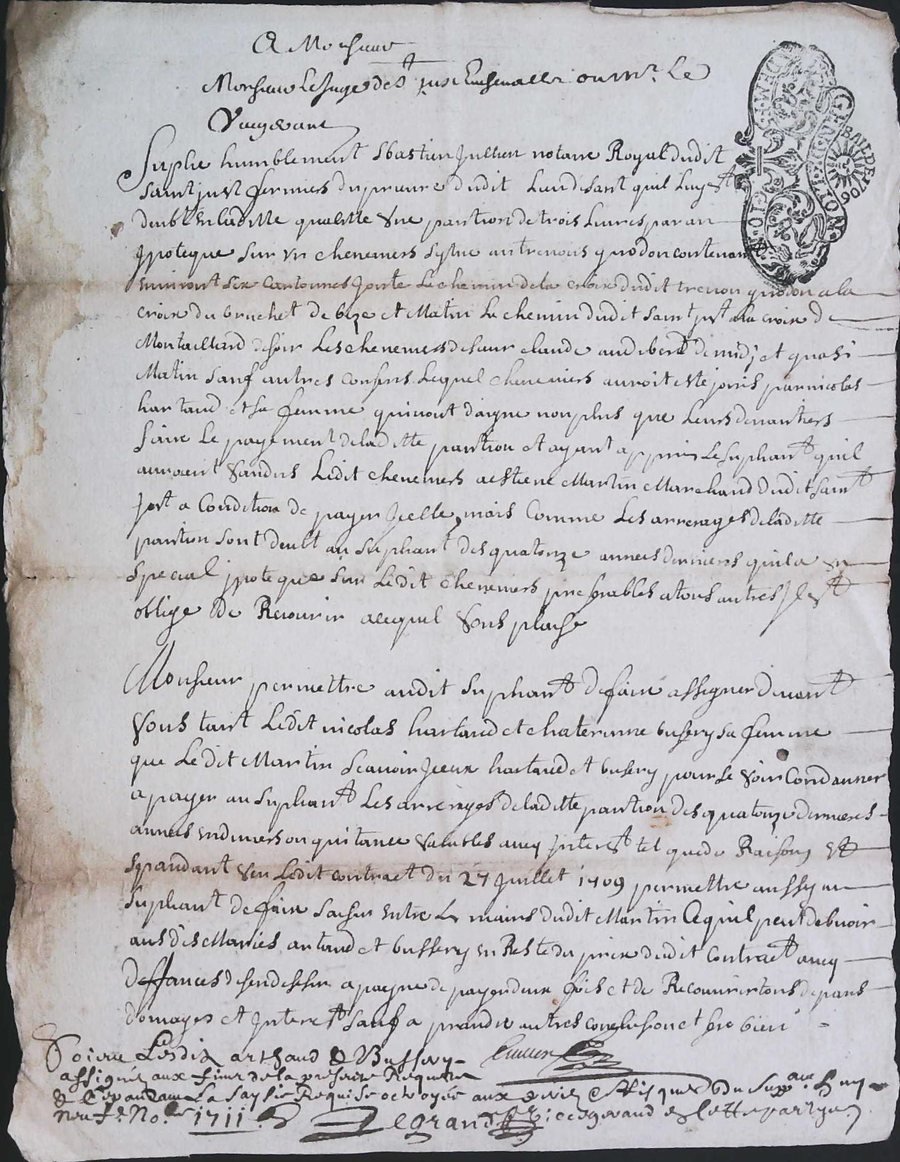 A Monsieur
Monsieur Le Juge de St just En chevallet ou Mr. Le
Vicegerant
Suplie humblement Sbastien Jullien notaire Royal dudit
saint just fermier du prieuré dudit Lieu disant quil Luy est
deubt en laditte qualitté une pantion de trois Livres par an
Ipoteque sur un cheneviers sytué au trenois quodon contenant
environt six cartonnes Joiste Le chemin de la croix dudit trenon quodon a la
croix du bruchet de bize et Matin Le chemin dudit saint just a la croix de
Montailliard de soir Les cheneviers de sieur claude audibert de midj et quasi
Matin sauf autres confins Lequel cheneviers auroit esté jouis par nicolas
hartaud et sa femme quinont daigné non plus que Leurs devantiers
faire Le payement de laditte pantion et ayant appris Le supliant quil
auroient vandus Ledit cheneviers a estiene Martin Marchand dudit saint
just a condition de payer Jcelle, mais comme Les arrerages de laditte
pantion sont deubt au supliant des quatorze années derniers quil a un
special jpoteque sur Ledit cheneviers preferables a tous autres Jl est
obligé de Recourir a ce quil vous plaise
Monsieur permettre audit supliant de faire assigner devant
vous tant Ledit nicolas hartaud et chaterinne bussery sa femme
que Ledit Martin scavoir Jceux hartaud et bussery pour se voir condanner
a payer au supliant Les arrerages de laditte pantion des quatorze dernieres
années en deniers ou quitance valables avec jnterest tel que de Raison et
cepandant veu Ledit contract du 27 Juillet 1709 permettre aussy au
supliant de faire saisir entre Les mains dudit Martin ce quil peut debvoir
ausdis Mariés artaud et bussery en Reste du prix dudit contract avec
deffances de sendessir a payne de payer deux fois et de Recouvrer tous depans
domages et jnterest sauf a prandre autres conclusion et fere bien
Jullien
Soient Lesdis arthaud & Bussery
assignés aux fins de la presente Requete
& cependant La saysie Requise octroyée aux
neuf No.bre 1711.
Legrand
GENERALITE
LION